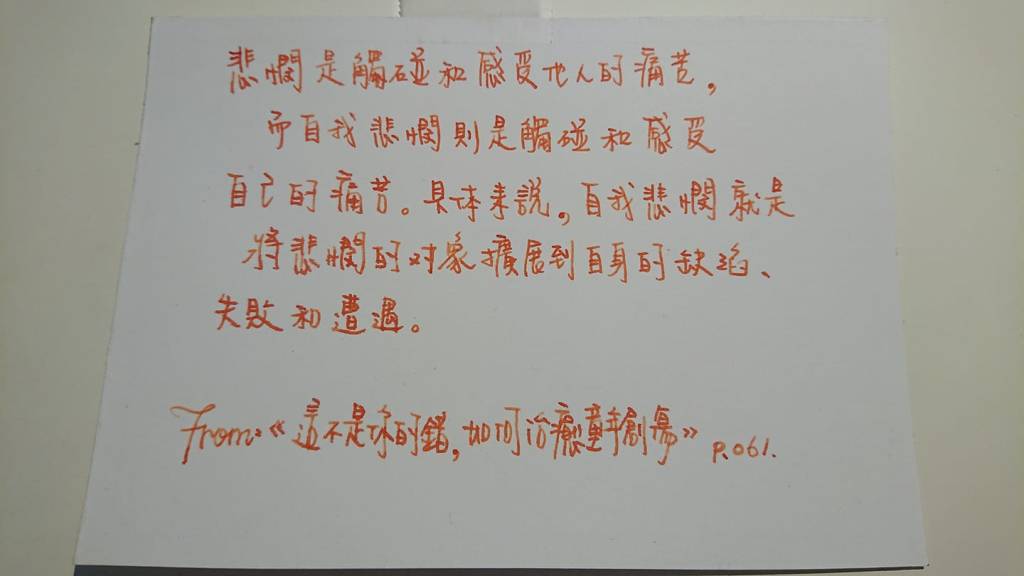 悲憫是觸碰和感受他人的痛苦,
而自我悲憫則是觸碰和感受
自己的痛苦。具体来説,自我悲憫就是
將悲憫的对象擴展到自身的缺陷、
失敗和遭遇。
From:《這不是你的錯,如何治癒童年創傷》 P.061.